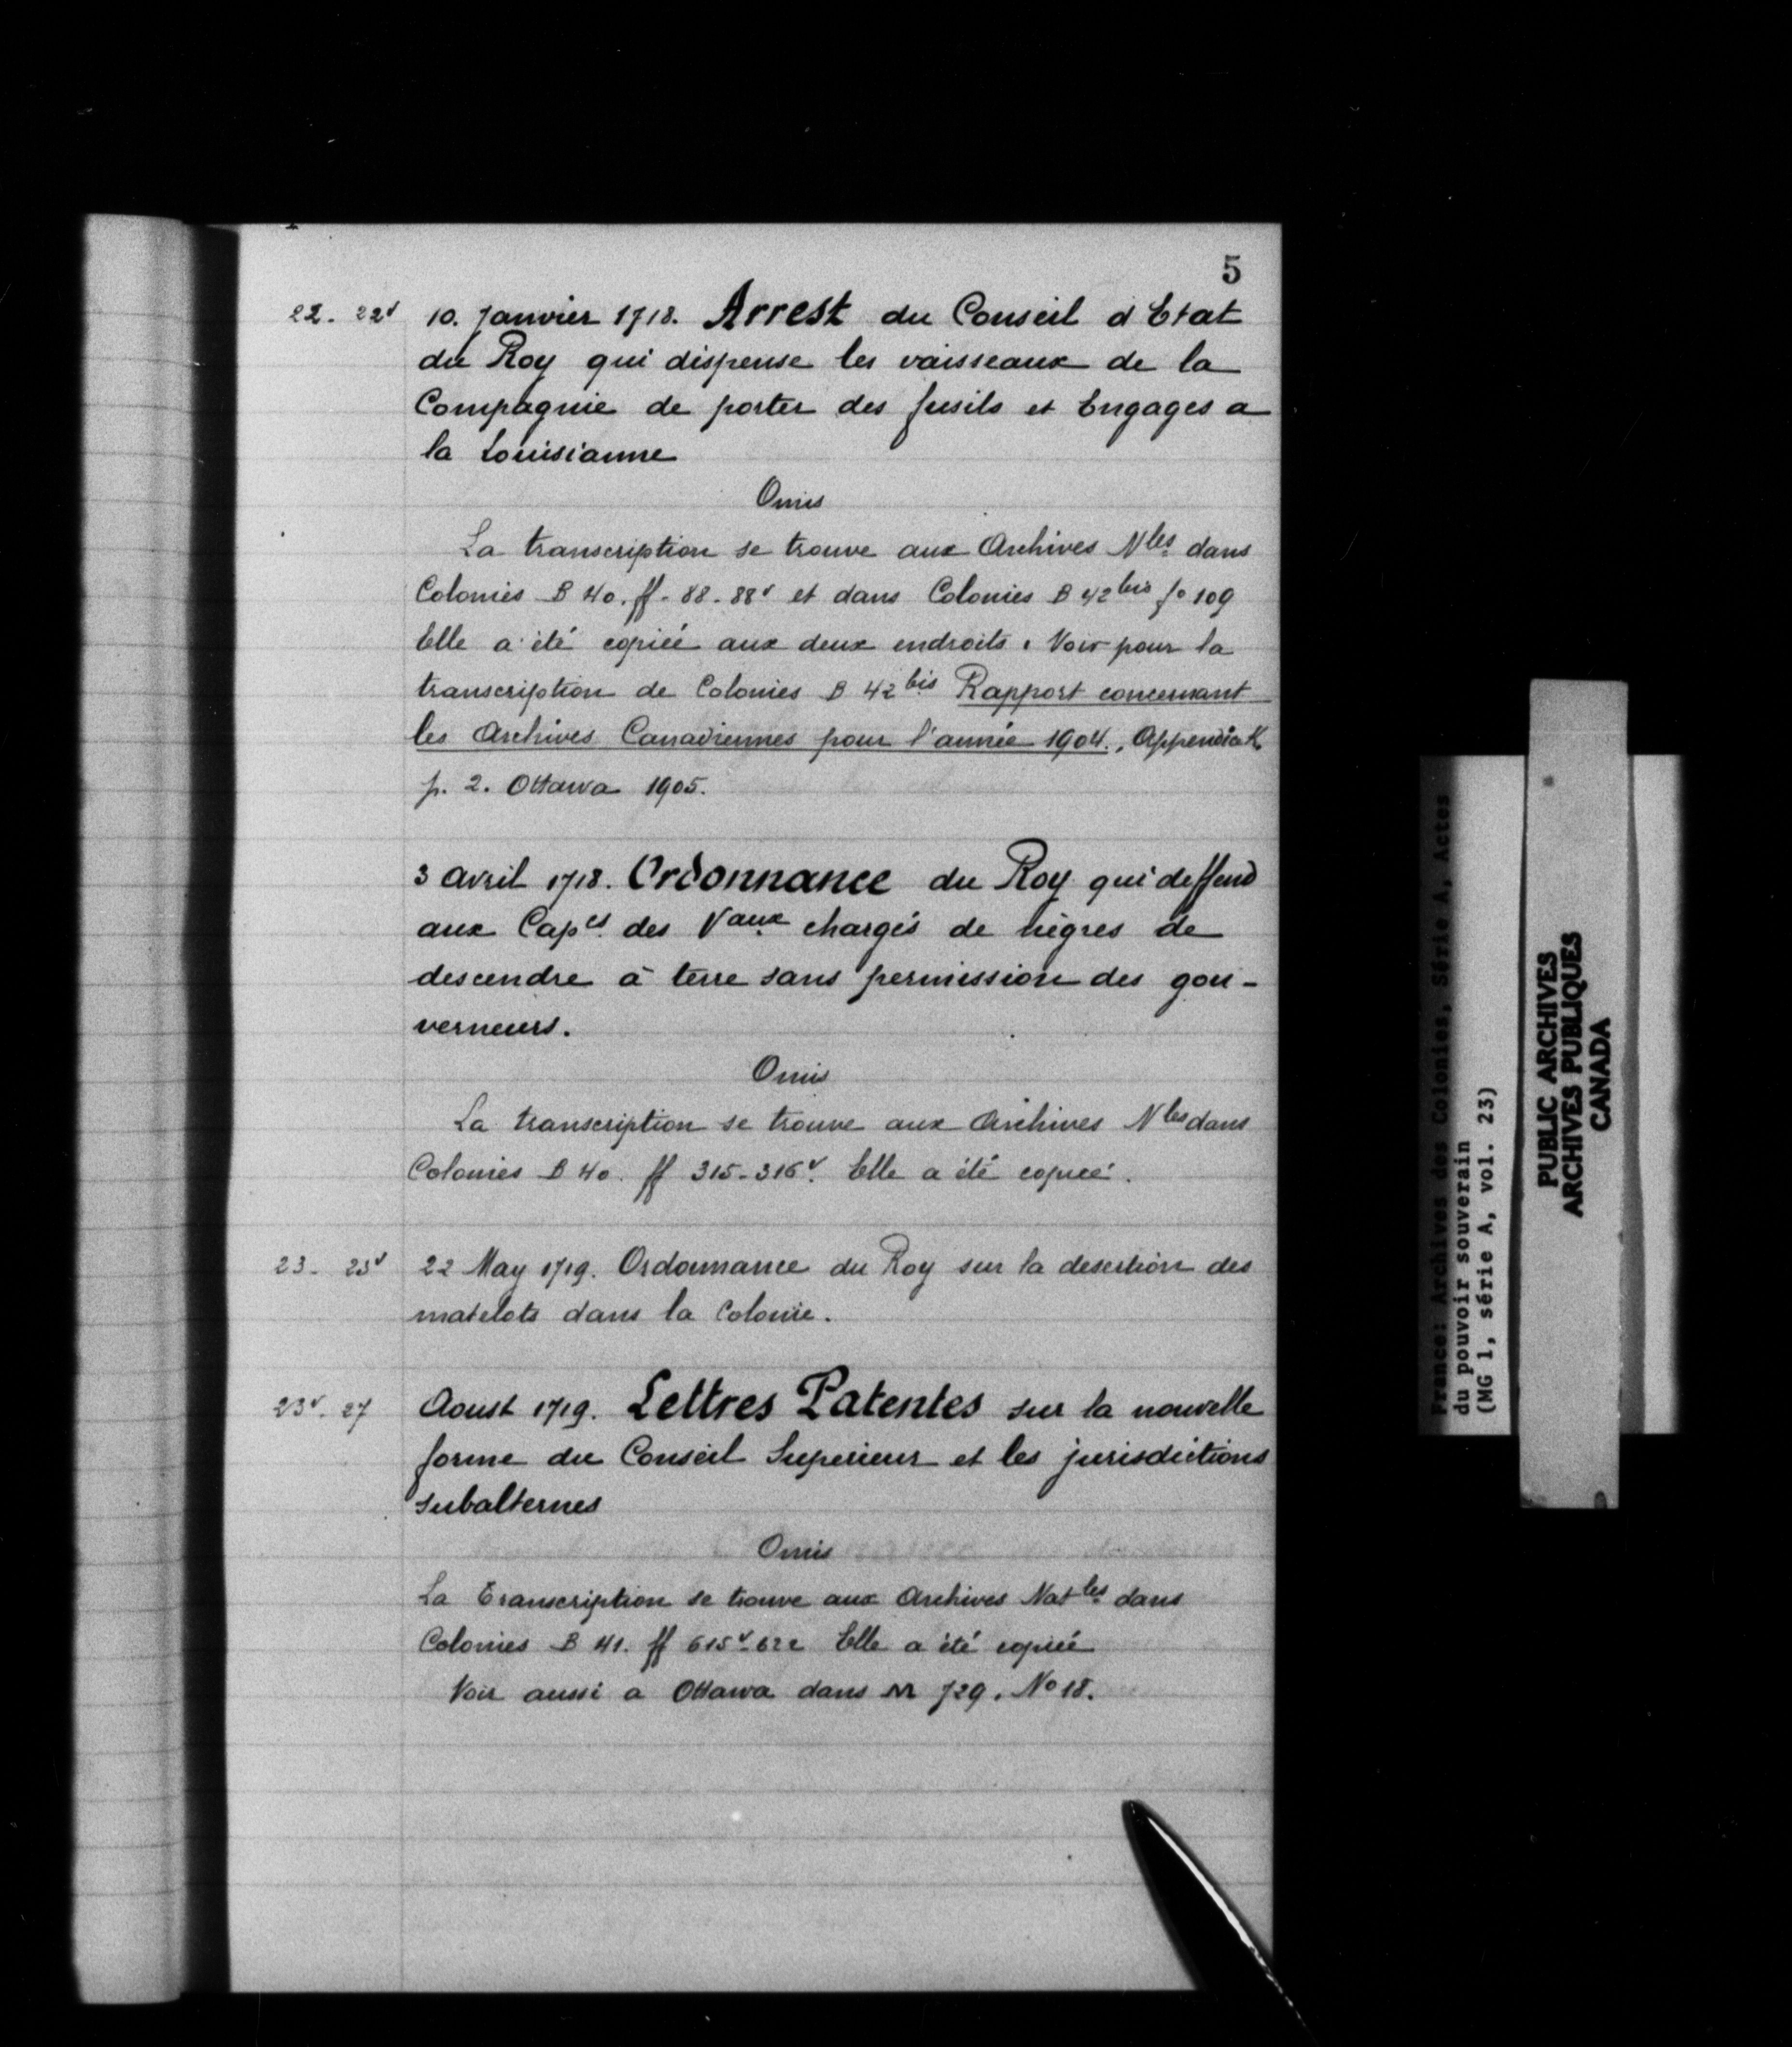 5
22. 22v 10. Janvier 1718. Arrest du Conseil d'Etat
du Roy qui dispense les vaisseaux de la
Compagnie de porter des fusils et Engages a
la Louisianne
Omis
La transcription se trouve aux Archives Nles dans
Colonies B 40. ff. 88-88v et dans Colonies B 42bis fo 109
Elle a été copiée aux deux endroits. Voir pour la
transcription de Colonies B 42bis Rapport concernant
les Archives Canadiennes pour l'année 1904., Appendix K
p. 2. Ottawa 1905.
3 Avril 1718. Ordonnance du Roy qui deffend
aux Capes des Vaux chargés de nègres de
descendre à terre sans permission des gou-
verneurs.
Omis
La transcription se trouve aux Archives Nles dans
Colonies B 40. ff 315-316v. Elle a été copiée.
23. 23v 22 May 1719. Ordonnance du Roy sur la desertion des
matelots dans la Colonie.
23v. 27 Aoust 1719. Lettres Patentes sur la nouvelle
forme du Conseil Superieur et les jurisdictions
subalternes
Omis
La Transcription se trouve aux Archives Natles dans
Colonies B 41. ff 615v-622 Elle a été copiée
Voir aussi a Ottawa dans M 729. No 18.
France: Archives des Colonies, Série A, Actes
du pouvoir souverain
(MG 1, série A, vol. 23)
PUBLIC ARCHIVES
ARCHIVES PUBLIQUES
CANADA